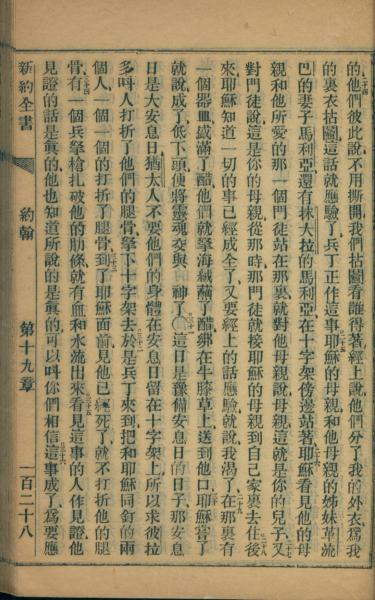 的他們彼此說不用撕開我們拈鬮看誰得著經上說他們分了我的外衣爲我
的裏衣拈鬮這話就應驗了兵丁正作這事耶穌的母親和他母親的姊妹革流
巴的妻子馬利亞還有抹大拉的馬利亞在十字架傍邊站著耶穌看見他的母
親和他所愛的那一個門徒站在那裏就對他母親說母親這就是你的兒子又
對門徒說這是你的母親從那時那門徒就接耶穌的母親到自己家裏去住後
來耶穌知道一切的事已經成全了又要經上的話應驗就說我渴了在那裏有
一個器皿盛滿了醋他們就拏海絨蘸了醋綁在牛膝草上送到他口耶穌嘗了
就說成了低下頭便將靈魂交與 神了○這日是豫備安息日的日子那安息
日是大安息日猶太人不要他們的身體在安息日留在十字架上所以求彼拉
多呌人打折了他們的腿骨拏下十字架去於是兵丁來到把和耶穌同釘的兩
個人一個一個的打折了腿骨到了耶穌面前見他已經死了就不打折他的腿
骨有一個兵拏槍扎破他的肋條就有血和水流出來看見這事的人作見證他
見證的話是眞的他也知道所說的是眞的可以呌你們相信這事成了爲要應
新約全書 約翰 第十九章 一百二十八